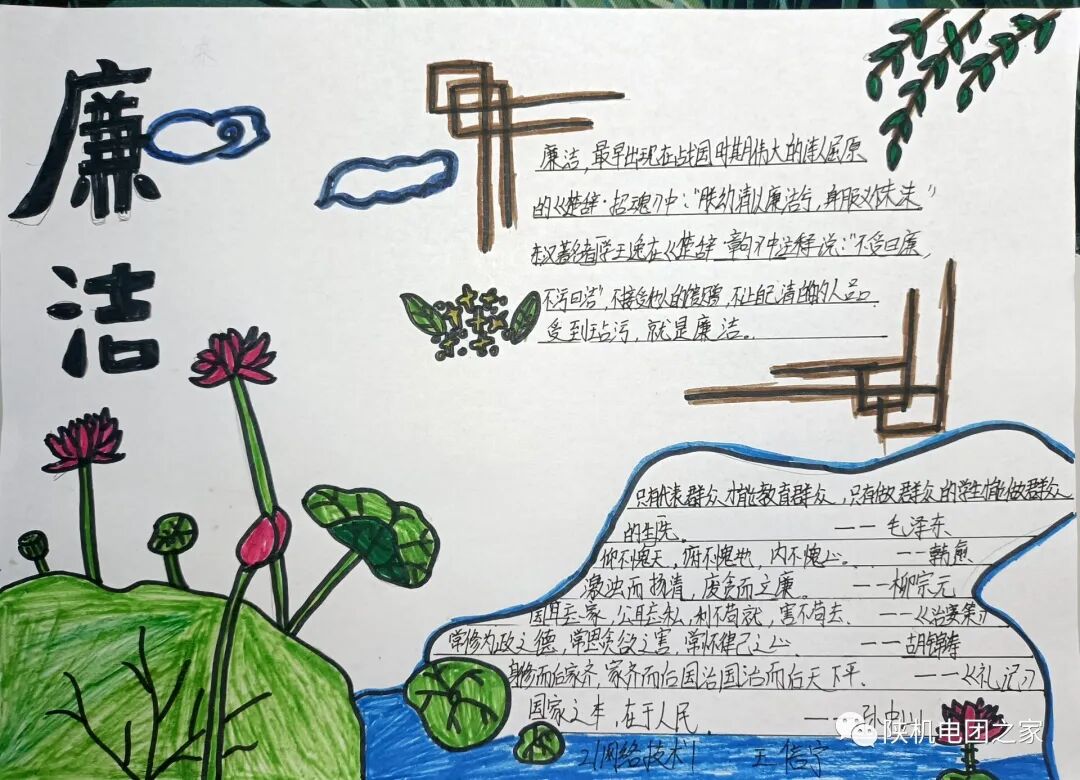 廉洁
廉洁,最早出现在战国时期伟大的诗人屈原
的《楚辞·招魂》中:“朕幼清以廉洁兮,身服义而未沫”
东汉著名学者王逸在《楚辞·章句》中注释说:“不受曰廉,
不污曰洁”,不接受他人的馈赠,不让自己清白的人品
受到玷污,就是廉洁。
只有代表群众才能教育群众,只有做群众的学生才能做群众
的先生。 —— 毛泽东
仰不愧天,俯不愧地,内不愧心。 ——韩愈
激浊而扬清,废贪而立廉。 ——柳宗元
国耳忘家,公耳忘私,利不苟就,害不苟去. ——《治安策》
常修为政之德,常思贪欲之害,常怀律己之心 ——胡锦涛
身修而后家齐,家齐而后国治国治而后天下平. ——《礼记》
国家之本,在于人民 —— 孙中山
21网络技术1 王
陕机电团之家